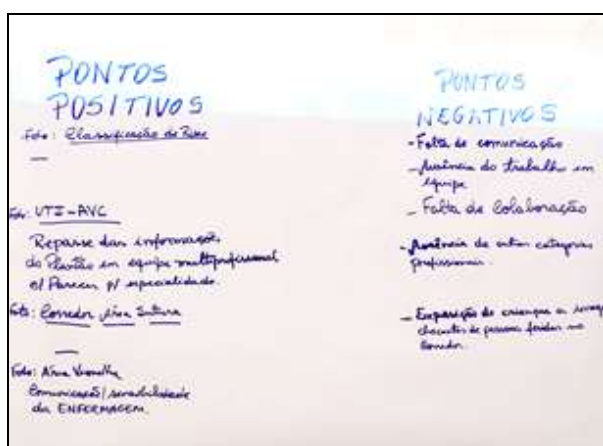 PONTOS
POSITIVOS
Foto: Classificação de Risco
—
Foto: UTI-AVC
Repasse das informações
do Plantão em equipe multiprofissional
c/ Parecer p/ especialidade.
Foto: Corredor Área Sutura
—
Foto: Área Vermelha
Comunicação/sensibilidade
da ENFERMAGEM.
PONTOS
NEGATIVOS
- Falta de comunicação
- Ausência do trabalho em
equipe
- Falta de Colaboração
- Ausência de outras categorias
profissionais.
- Exposição de crianças a
chocantes de pessoas feridas no
Corredor.